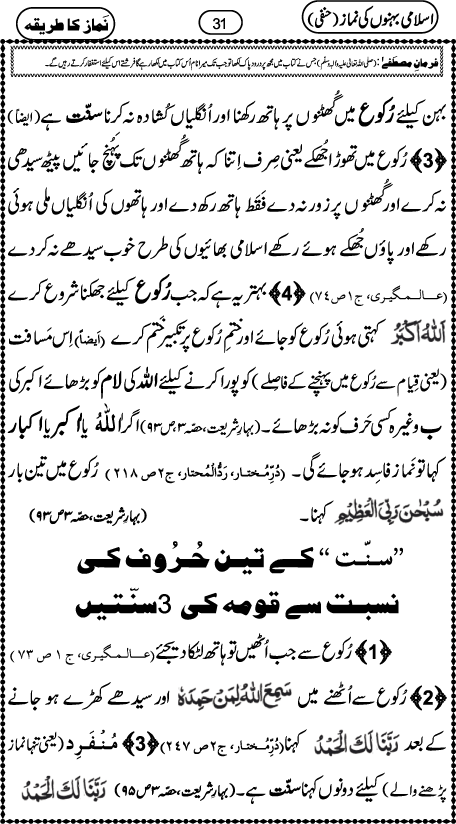 اسلامی بہنوں کی نماز (حنفی) 31 نَماز کا طریقہ
فرمانِ مصطفےٰ: (صلی اللہ تعالیٰ علیہ والہٖ وسلم) جس نے کتاب میں مجھ پر درود پاک لکھا تو جب تک میرا نام اُس کتاب میں لکھا رہے گا فرشتے اس کیلئے استغفار کرتے رہیں گے۔
بہن کیلئے رُکوع میں گُھٹنوں پر ہاتھ رکھنا اور اُنگلیاں کُشادہ نہ کرنا سنّت ہے (ایضاً)
﴿3﴾ رُکوع میں تھوڑا جُھکے یعنی صِرف اِتنا کہ ہاتھ گُھٹنوں تک پُہنچ جائیں پیٹھ سیدھی
نہ کرے اور گُھٹنوں پر زور نہ دے فَقَط ہاتھ رکھ دے اور ہاتھوں کی اُنگلیاں ملی ہوئی
رکھے اور پاؤں جُھکے ہوئے رکھے اسلامی بھائیوں کی طرح خوب سیدھے نہ کر دے
(عالمگیری، ج۱ ص۷۴) ﴿4﴾ بہتر یہ ہے کہ جب رُکوع کیلئے جھکنا شروع کرے
اَللّٰہُ اَکْبَرُ کہتی ہوئی رُکوع کو جائے اور ختمِ رُکوع پر تکبیر ختم کرے (ایضاً) اِس مَسافت
(یعنی قِیام سے رُکوع میں پہنچنے کے فاصلے) کو پورا کرنے کیلئے اللہ کی لام کو بڑھائے اکبر کی
ب وغیرہ کسی حَرف کو نہ بڑھائے۔ (بہارِ شریعت، حصّہ ۳ ص۹۳) اگر اٰللّٰہُ یا اٰکبر یا اکبار
کہا تو نَماز فاسِد ہو جائے گی۔ (دُرِّمُختار، رَدُّالْمُحتار، ج۲ ص ۲۱۸) رُکوع میں تین بار
سُبْحٰنَ رَبِّیَ الْعَظِیْم کہنا۔ (بہارِ شریعت، حصّہ ۳ ص۹۳)
”سنّت“ کے تین حُرُوف کی
نسبت سے قومہ کی 3سنّتیں
﴿1﴾ رُکوع سے جب اُٹھیں تو ہاتھ لٹکا دیجئے (عالمگیری، ج ۱ ص ۷۳)
﴿2﴾ رُکوع سے اُٹھنے میں سَمِعَ اللّٰہُ لِمَنْ حَمِدَہٗ اور سیدھے کھڑے ہو جانے
کے بعد رَبَّنَا لَکَ الْحَمْدُ کہنا (دُرِّمُختار، ج۲ ص ۲۴۷) ﴿3﴾ مُنْفَرِد (یعنی تنہا نماز
پڑھنے والے) کیلئے دونوں کہنا سنّت ہے۔ (بہارِ شریعت، حصّہ ۳ ص۹۵) رَبَّنَا لَکَ الْحَمْدُ